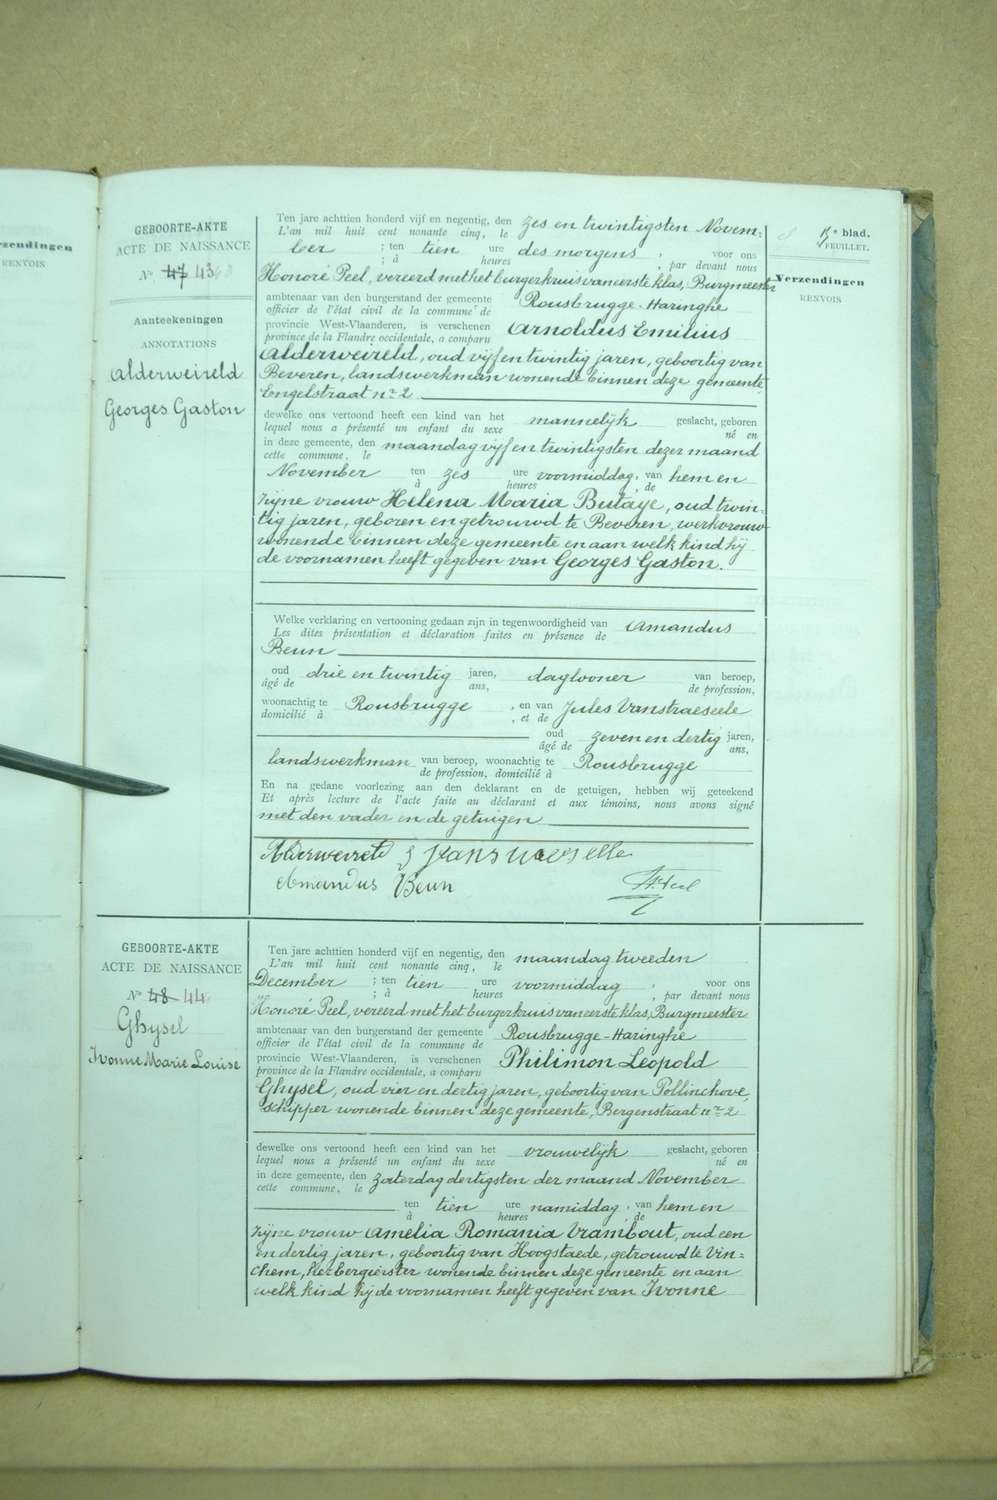 rzendingen
RENVOIS
blad.
FEUILLET.
Verzendingen
RENVOIS
GEBOORTE-AKTE
ACTE DE NAISSANCE
Nº 47 43
Aanteekeningen
ANNOTATIONS
Alderweireld
Georges Gaston
Ten jare achttien honderd vijf en negentig, den zes en twintigsten Novem-
L'an mil huit cent nonante cinq, le
ber ; ten tien ure des morgens , voor ons
; à heures , par devant nous
Honoré Peel, vereerd met het burgerkruis van eerste klas, Burgmeester
ambtenaar van den burgerstand der gemeente Rousbrugge-Haringhe
officier de l'état civil de la commune de
provincie West-Vlaanderen, is verschenen Arnoldus Emilius
province de la Flandre occidentale, a comparu
Alderweireld, oud vijf en twintig jaren, geboortig van
Beveren, landswerkman wonende binnen deze gemeente,
Engelstraat nr 2
dewelke ons vertoond heeft een kind van het mannelijk geslacht, geboren
lequel nous a présenté un enfant du sexe né en
in deze gemeente, den maandag vijf en twintigsten dezer maand
cette commune, le
November ten zes ure voormiddag, van hem en
à heures , de
zijne vrouw Helena Maria Butaye, oud twin-
tig jaren, geboren en getrouwd te Beveren, werkvrouw
wonende binnen deze gemeente en aan welk kind hij
de voornamen heeft gegeven van Georges Gaston.
Welke verklaring en vertooning gedaan zijn in tegenwoordigheid van Amandus
Les dites présentation et déclaration faites en présence de
Beun
oud drie en twintig jaren, daglooner van beroep,
âgé de ans, de profession,
woonachtig te Rousbrugge , en van Jules Vanstraeseele
domicilié à , et de
oud zeven en dertig jaren,
âgé de ans,
landswerkman van beroep, woonachtig te Rousbrugge
de profession, domicilié à
En na gedane voorlezing aan den deklarant en de getuigen, hebben wij geteekend
Et après lecture de l'acte faite au déclarant et aux témoins, nous avons signé
met den vader en de getuigen
Amandus Beun
GEBOORTE-AKTE
ACTE DE NAISSANCE
Nº 48 44
Ghysel
Ivonne Marie Louise
Ten jare achttien honderd vijf en negentig, den maandag tweeden
L'an mil huit cent nonante cinq, le
December ; ten tien ure voormiddag , voor ons
; à heures , par devant nous
Honoré Peel, vereerd met het burgerkruis van eerste klas, Burgmeester
ambtenaar van den burgerstand der gemeente Rousbrugge-Haringhe
officier de l'état civil de la commune de
provincie West-Vlaanderen, is verschenen Philimon Leopold
province de la Flandre occidentale, a comparu
Ghysel, oud vier en dertig jaren, geboortig van Pollinchove,
schipper wonende binnen deze gemeente, Bergenstraat nr 2
dewelke ons vertoond heeft een kind van het vrouwelijk geslacht, geboren
lequel nous a présenté un enfant du sexe né en
in deze gemeente, den zaterdag dertigsten der maand November
cette commune, le
ten tien ure namiddag, van hem en
à heures , de
zijne vrouw Amelia Romania Vrambout, oud een
en dertig jaren, geboortig van Hoogstaede, getrouwd te Vin=
chem, herbergierster wonende binnen deze gemeente en aan
welk kind hij de voornamen heeft gegeven van Ivonne